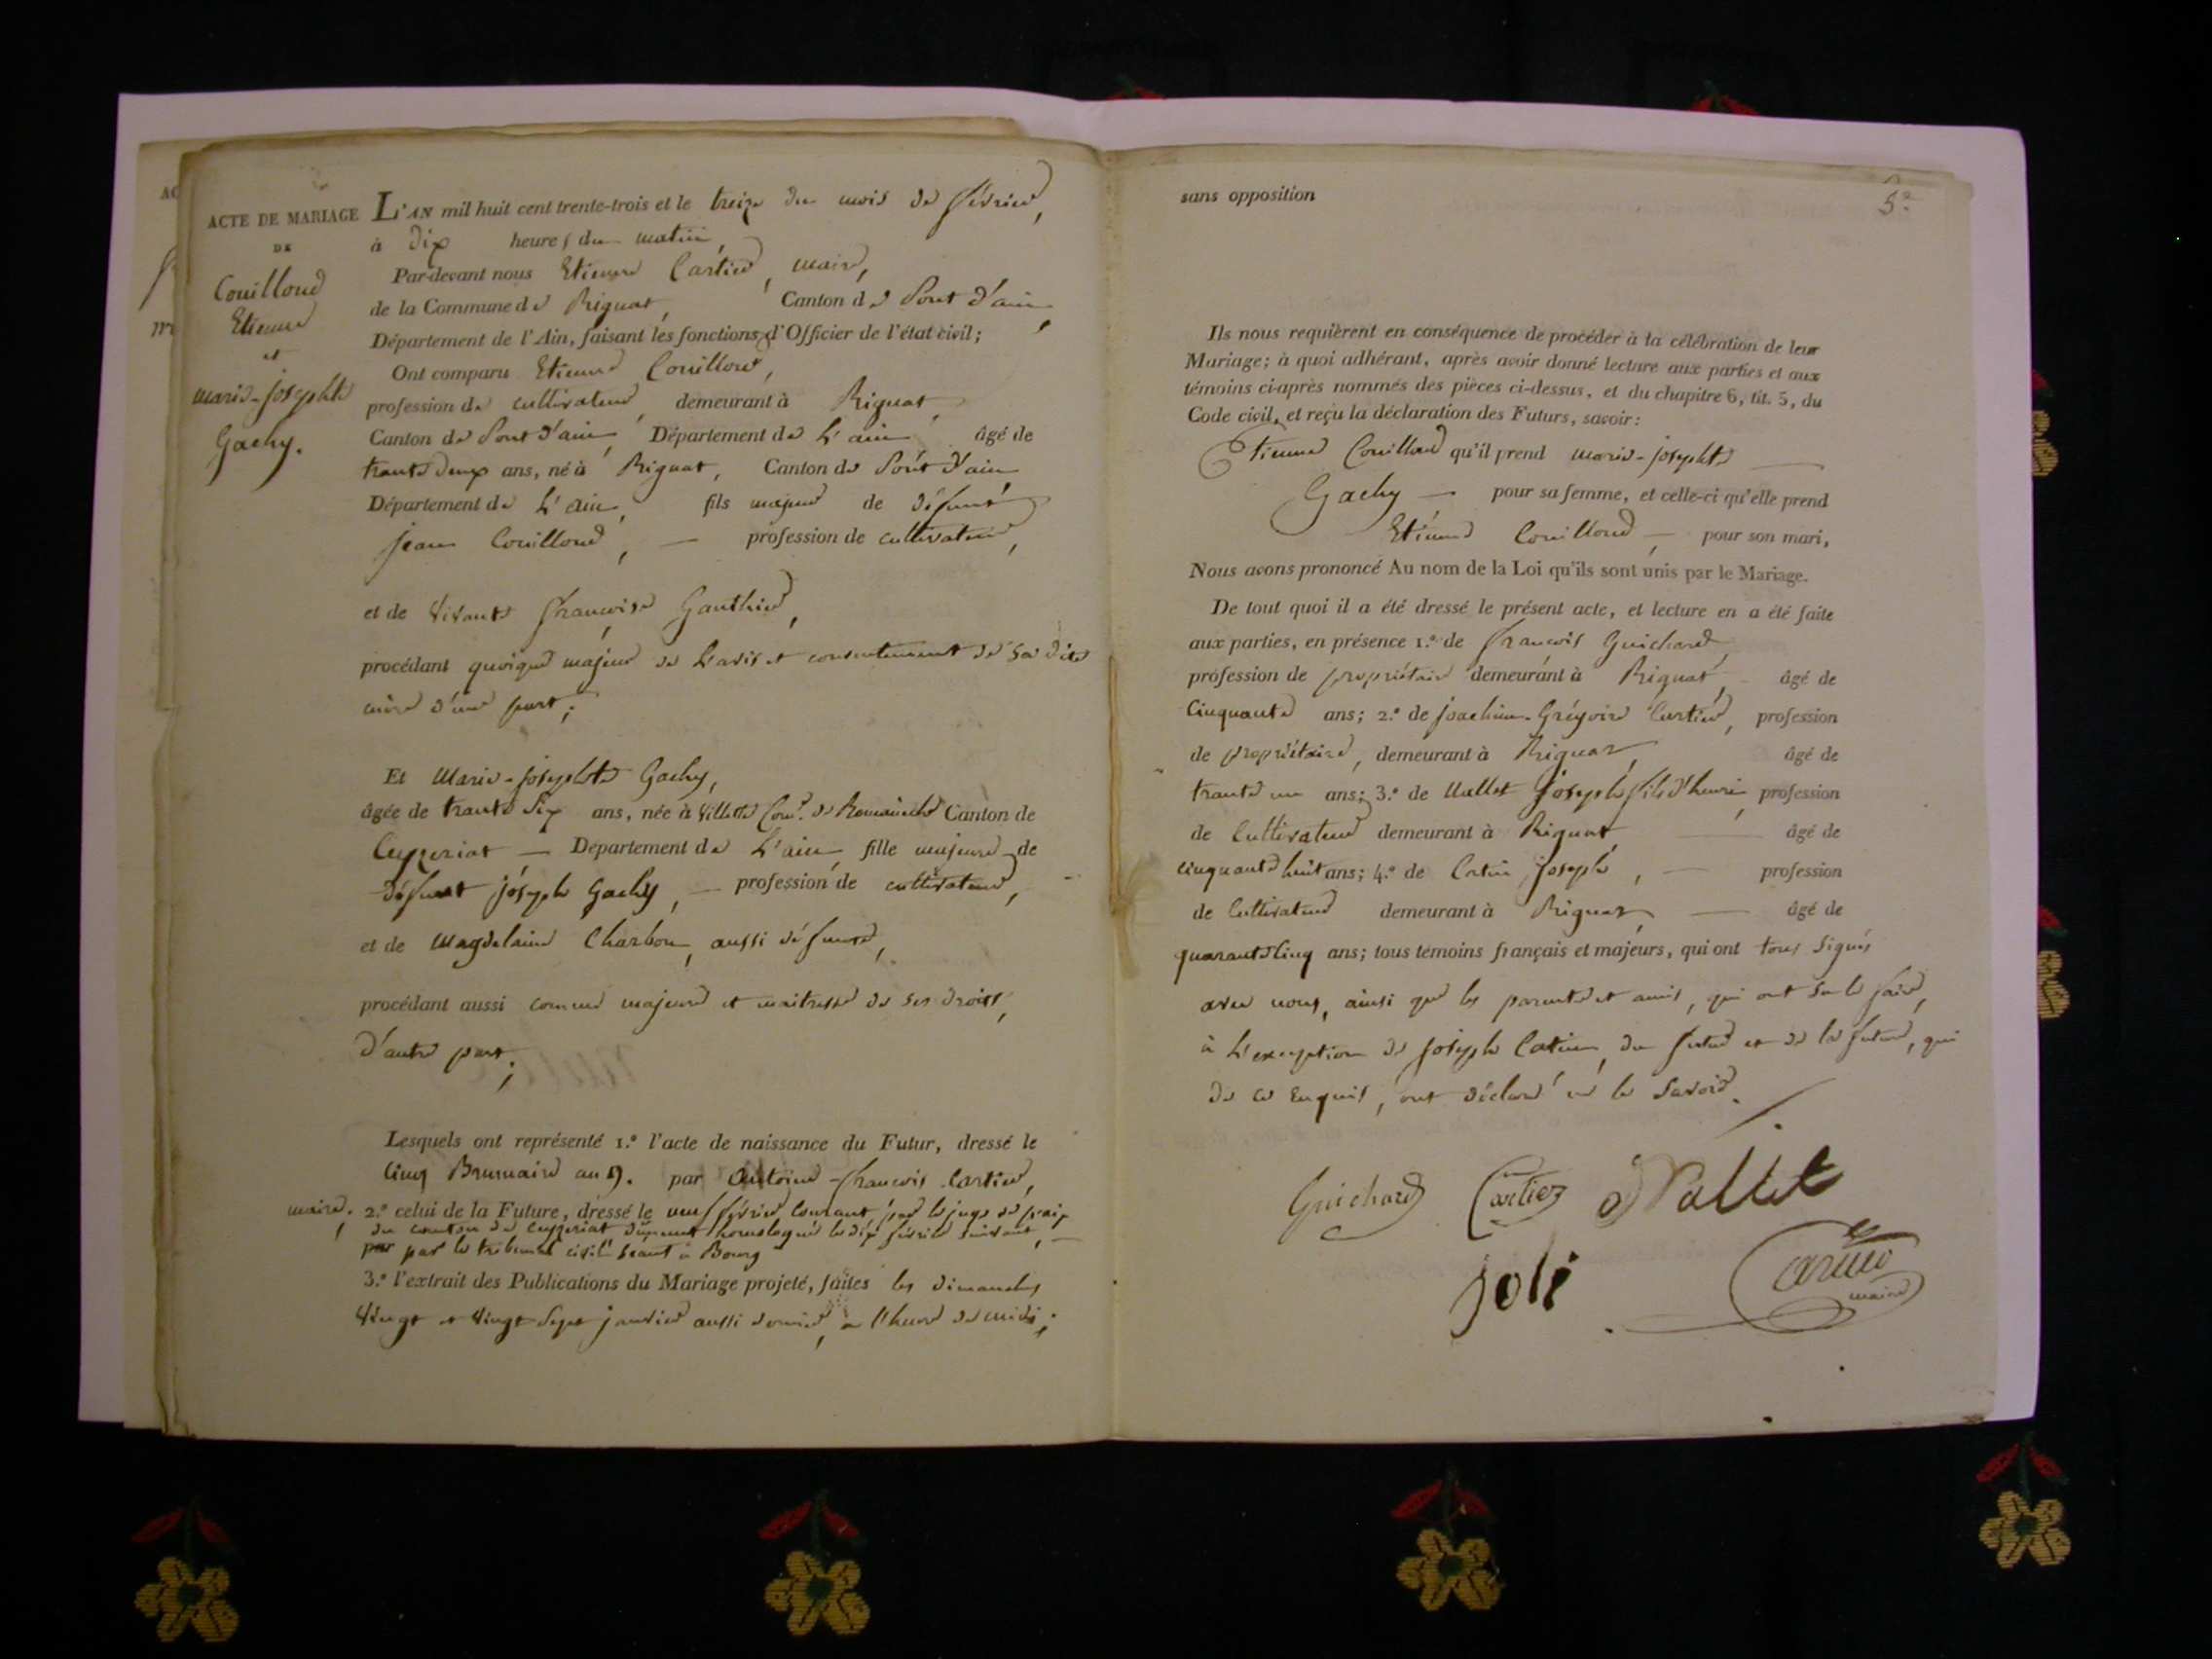 ACTE DE MARIAGE
DE
Couilloud
Etienne
et
marie-josephte
Gachy.
L'AN mil huit cent trente-trois et le treize du mois de février,
à dix heures du matin,
Par-devant nous Etienne Cartier, maire,
de la Commune de Rignat, Canton de Pont d'ain,
Département de l'Ain, faisant les fonctions d'Officier de l'état civil;
Ont comparu Etienne Couilloud,
profession de cultivateur, demeurant à Rignat,
Canton de Pont d'ain, Département de L'ain, âgé de
trante deux ans, né à Rignat, Canton de Pont d'ain
Département de L'ain, fils majeur de défunt
jean Couilloud, — profession de cultivateur,
et de vivante françoise Gauthier,
procédant quoique majeur de L'avis et consentement de sa dite
mère d'une part;
Et Marie-josephte Gachy,
âgée de trante six ans, née à Villette Com.e de Romanèche Canton de
Ceyzeriat — Département de L'ain, fille majeure de
défunt joseph Gachy, — profession de cultivateur,
et de Magdelaine Charbon, aussi défunte,
procédant aussi comme majeure et maitresse de ses droits,
d'autre part;
Lesquels ont représenté 1.º l'acte de naissance du Futur, dressé le
cinq Brumaire an 9. par Antoine-francois Cartier,
maire, 2.º celui de la Future, dressé le neuf février courant par le juge de paix
du canton de Ceyzeriat dument homologué le dix février suivant, —
par par le tribunal civil séant à Bourg
3.º l'extrait des Publications du Mariage projeté, faites les dimanches
vingt et vingt sept janvier aussi dernier, à l'heure de midi;
sans opposition
5e
Ils nous requièrent en conséquence de procéder à la célébration de leur
Mariage; à quoi adhérant, après avoir donné lecture aux parties et aux
témoins ci-après nommés des pièces ci-dessus, et du chapitre 6, tit. 5, du
Code civil, et reçu la déclaration des Futurs, savoir:
Etienne Couilloud qu'il prend marie-josephte
Gachy — pour sa femme, et celle-ci qu'elle prend
Etienne Couilloud — pour son mari,
Nous avons prononcé Au nom de la Loi qu'ils sont unis par le Mariage.
De tout quoi il a été dressé le présent acte, et lecture en a été faite
aux parties, en présence 1.º de francois Guichard,
profession de propriétaire demeurant à Rignat, âgé de
Cinquante ans; 2.º de joachim-Grégoire Cartier, profession
de propriétaire, demeurant à Rignat, âgé de
trante un ans; 3.º de Mallet joseph fils d'henri, profession
de Cultivateur demeurant à Rignat, âgé de
cinquante huit ans; 4.º de Catin joseph, — profession
de Cultivateur demeurant à Rignat, — âgé de
quarante cinq ans; tous témoins français et majeurs, qui ont tous signés
avec nous, ainsi que les parents et amis, qui ont su le faire,
à L'exception de joseph Catin, du futur et de la future, qui
de ce Enquis, ont déclaré ne le savoir.
Guichard Cartier Mallet
joli Cartier
maire